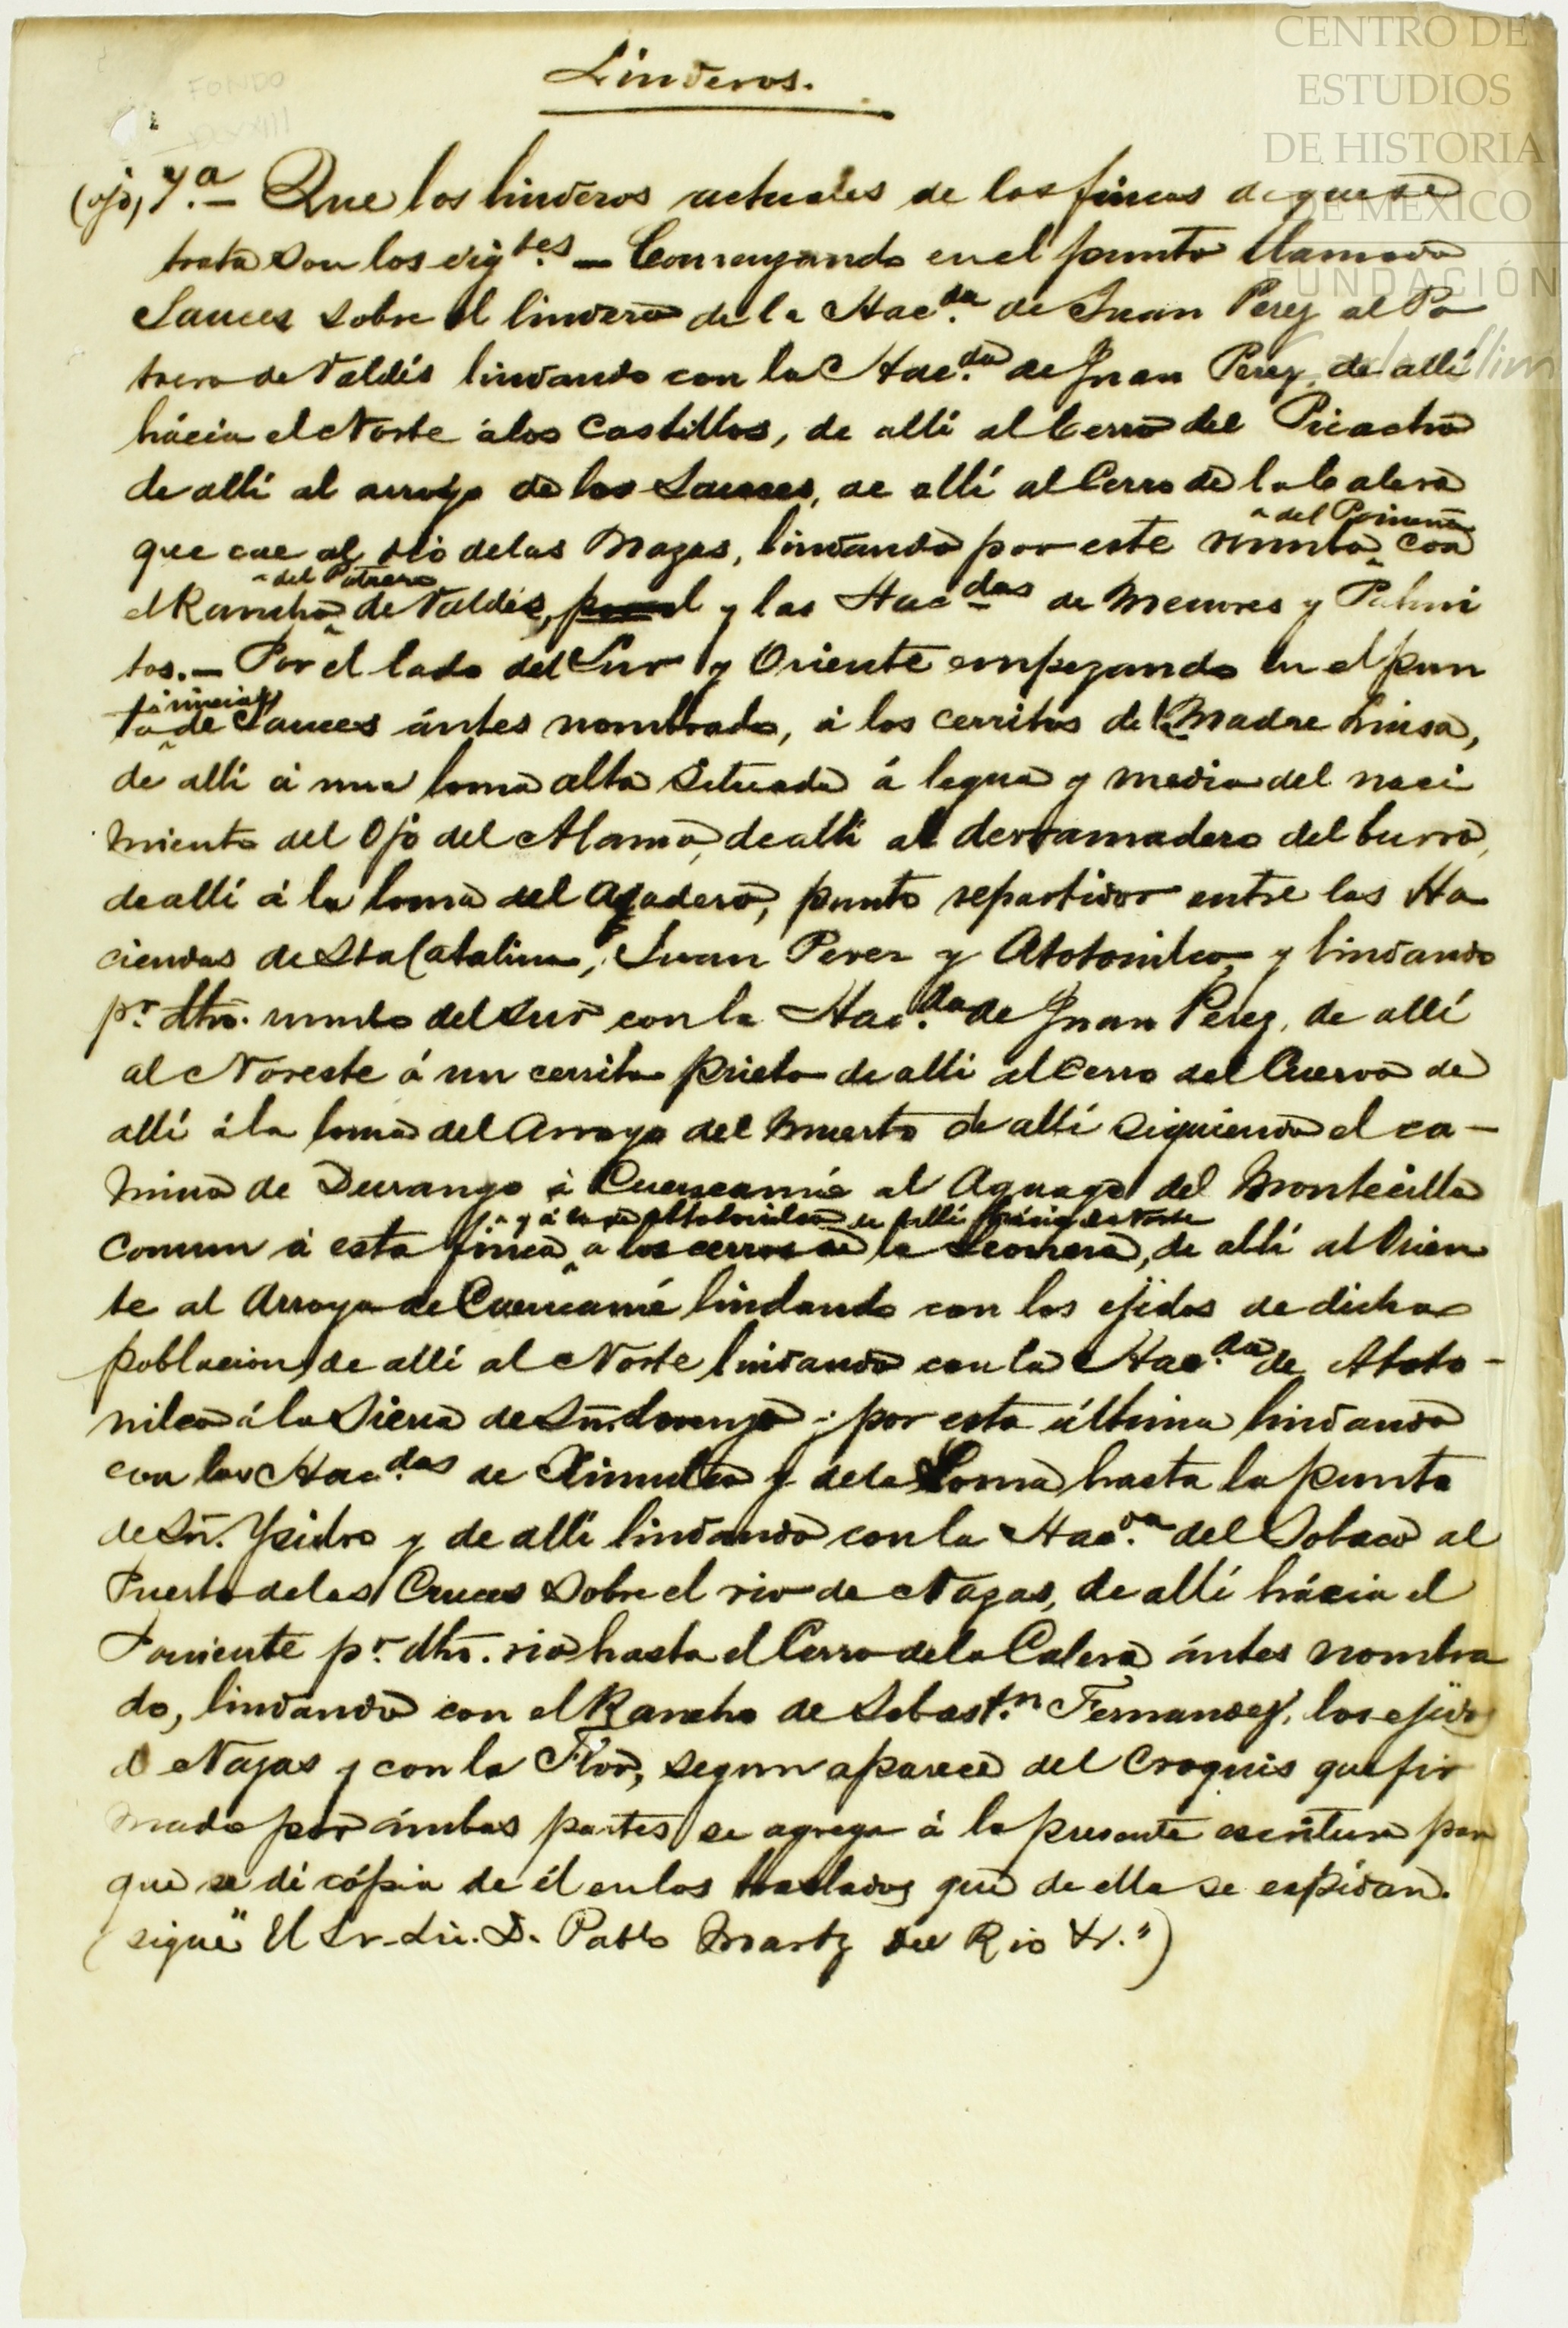 CENTRO DE
ESTUDIOS
DE HISTORIA
DE MÉXICO
FUNDACIÓN
FONDO
Linderos.
(ojo) 7.ª — Que los linderos actuales de las fincas de que se
trata son los sigtes. — Comenzando en el punto llamado
Sauces sobre el lindero de la Hac.da de Juan Perez al Po
trero de Valdés lindando con la Hac.da de Juan Perez, de allí
hácia el Norte á los Castillos, de allí al Cerro del Picacho
de allí al arroyo de los Sauces, de allí al Cerro de la Calera
que cae al rio de las Nazas, lindando por este rumbo del Poniente con
el Rancho del Potrero de Valdés, y las Hacdas de Menores y Palmi
tos. — Por el lado del Sur y Oriente empezando en el pun
to inicial de Sauces ántes nombrado, á los cerritos de la Madre Luisa,
de allí á una loma alta situada á legua y media del naci
miento del Ojo del Alamo, de allí al derramadero del burro,
de allí á la loma del Asadero, punto repartidor entre las Ha
ciendas de Sta Catalina, Juan Perez y Atotonilco, y lindando
pr. dho. rumbo del Sur con la Hac.da de Juan Perez, de allí
al Noreste á un cerrito prieto de alli al Cerro del Cuervo de
allí á la loma del Arroyo del Muerto de allí siguiendo el ca-
mino de Durango á Cuencamé al Aguage del Montecillo
comun á esta finca y á la de Atotonilco de allí hácia el Norte á los cerros de la Leonera, de allí al Orien
te al Arroyo de Cuencamé lindando con los ejidos de dicha
poblacion, de allí al Norte lindando con la Hac.da de Atoto-
nilco á la Sierra de Sn. Lorenzo; por esta última lindando
con las Hac.das de Ximulco y de la Loma hasta la punta
de Sn. Ysidro y de allí lindando con la Hac.da del Sobaco al
Puerto de las Cruces sobre el rio de Nazas, de allí hácia el
Poniente pr. dho. rio hasta el Cerro de la Calera ántes nombra
do, lindando con el Rancho de Sebast.n Fernandez, los ejidos
de Nazas y con la Flor, segun aparece del Croquis que fir
mado por ámbas partes se agrega á la presente escritura para
que se dé cópia de él en los traslados que de ella se expidan.
(sigue "El Sr. Lic. D. Pablo Martz del Rio &.")